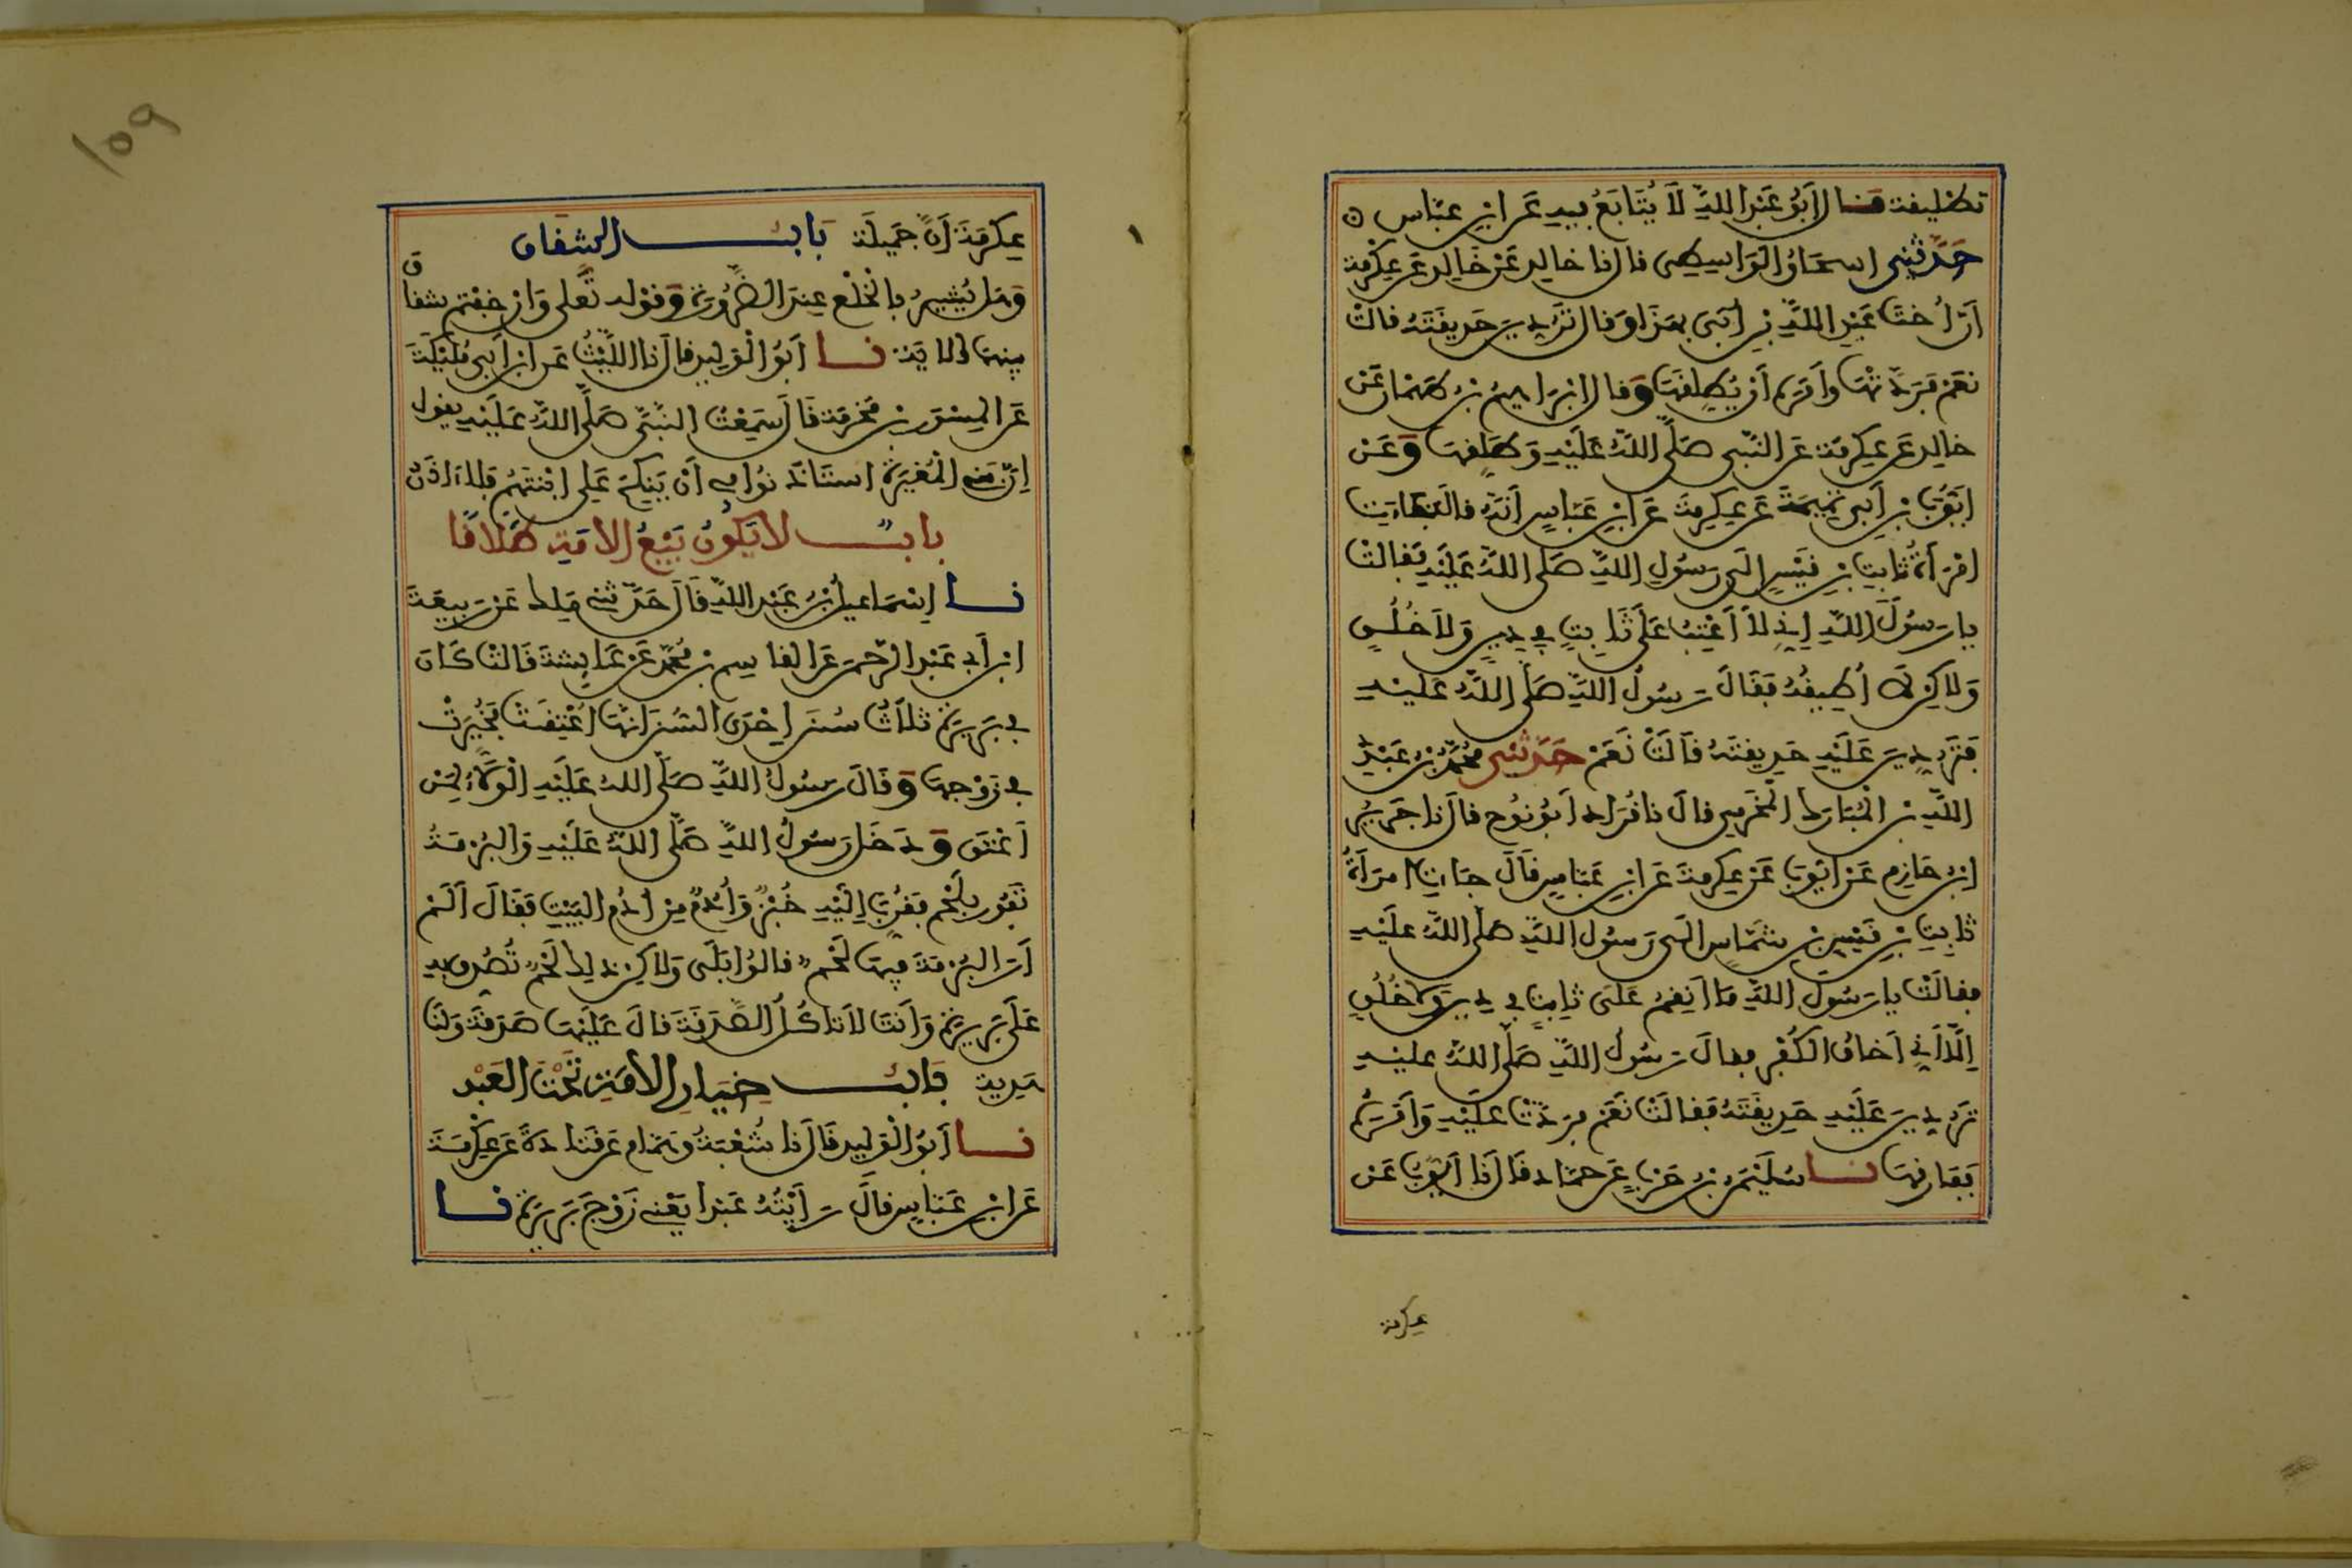 تطليقة قال أبو عبد الله لا يتابع فيه عن ابن عباس
حدثني اسحاق الواسطي قال نا خالد عن خالد عن عكرمة
أن أخت عبد الله بن أبي بهذا وقال تردين حديقته قالت
نعم فردتها وأمره أن يطلقها وقال ابراهيم بن طهمان عن
خالد عن عكرمة عن النبي صلى الله عليه وطلقها وعن
أيوب بن أبي تميمة عن عكرمة عن ابن عباس أنه قال جاءت
امرأة ثابت بن قيس الى رسول الله صلى الله عليه فقالت
يا رسول الله إني لا أعتب على ثابت في دين ولا خلق
ولاكني لا أطيقه فقال رسول الله صلى الله عليه
فتردين عليه حديقته قالت نعم حدثني محمد بن عبد
الله بن المبارك المخرمي قال نا قراد أبو نوح قال نا جرير
ابن حازم عن أيوب عن عكرمة عن ابن عباس قال جات امرأة
ثابت بن قيس بن شماس الى رسول الله صلى الله عليه
فقالت يا رسول الله ما أنقم على ثابت في دين ولا خلق
إلا أني أخاف الكفر فقال رسول الله صلى الله عليه
تردين عليه حديقته فقالت نعم فردت عليه وأمره
ففارقها نا سليمن بن حرب عن حماد قال نا أيوب عن
عكرمة
109
عكرمة أن جميلة باب الشقاق
وهل يشير بالخلع عند الضرورة وقوله تعلى وان خفتم شقاق
بينهما الاية نا أبو الوليد قال نا الليث عن ابن أبي مليكة
عن المسور بن مخرمة قال سمعت النبي صلى الله عليه يقول
إن بني المغيرة استاذنوا في أن ينكح علي ابنتهم فلا اذن
باب لا يكون بيع الأمة طلاقا
نا إسماعيل بن عبد الله قال حدثني ملك عن ربيعة
ابن أبي عبد الرحمن عن القاسم بن محمد عن عايشة قالت كان
في بريرة ثلاث سنن إحدى السنن انها أعتقت فخيرت
في زوجها وقال رسول الله صلى الله عليه الولاء لمن
أعتق ودخل رسول الله صلى الله عليه والبرمة
تفور بلحم فقرب إليه خبز وأدم من أدم البيت فقال ألم
أر البرمة فيها لحم قالوا بلى ولاكن ذلك لحم تصدق به
على بريرة وأنت لا تاكل الصدقة قال عليها صدقة ولنا
هدية باب خيار الأمة تحت العبد
نا أبو الوليد قال نا شعبة وهمام عن قتادة عن عكرمة
عن ابن عباس قال رأيته عبدا يعني زوج بريرة نا